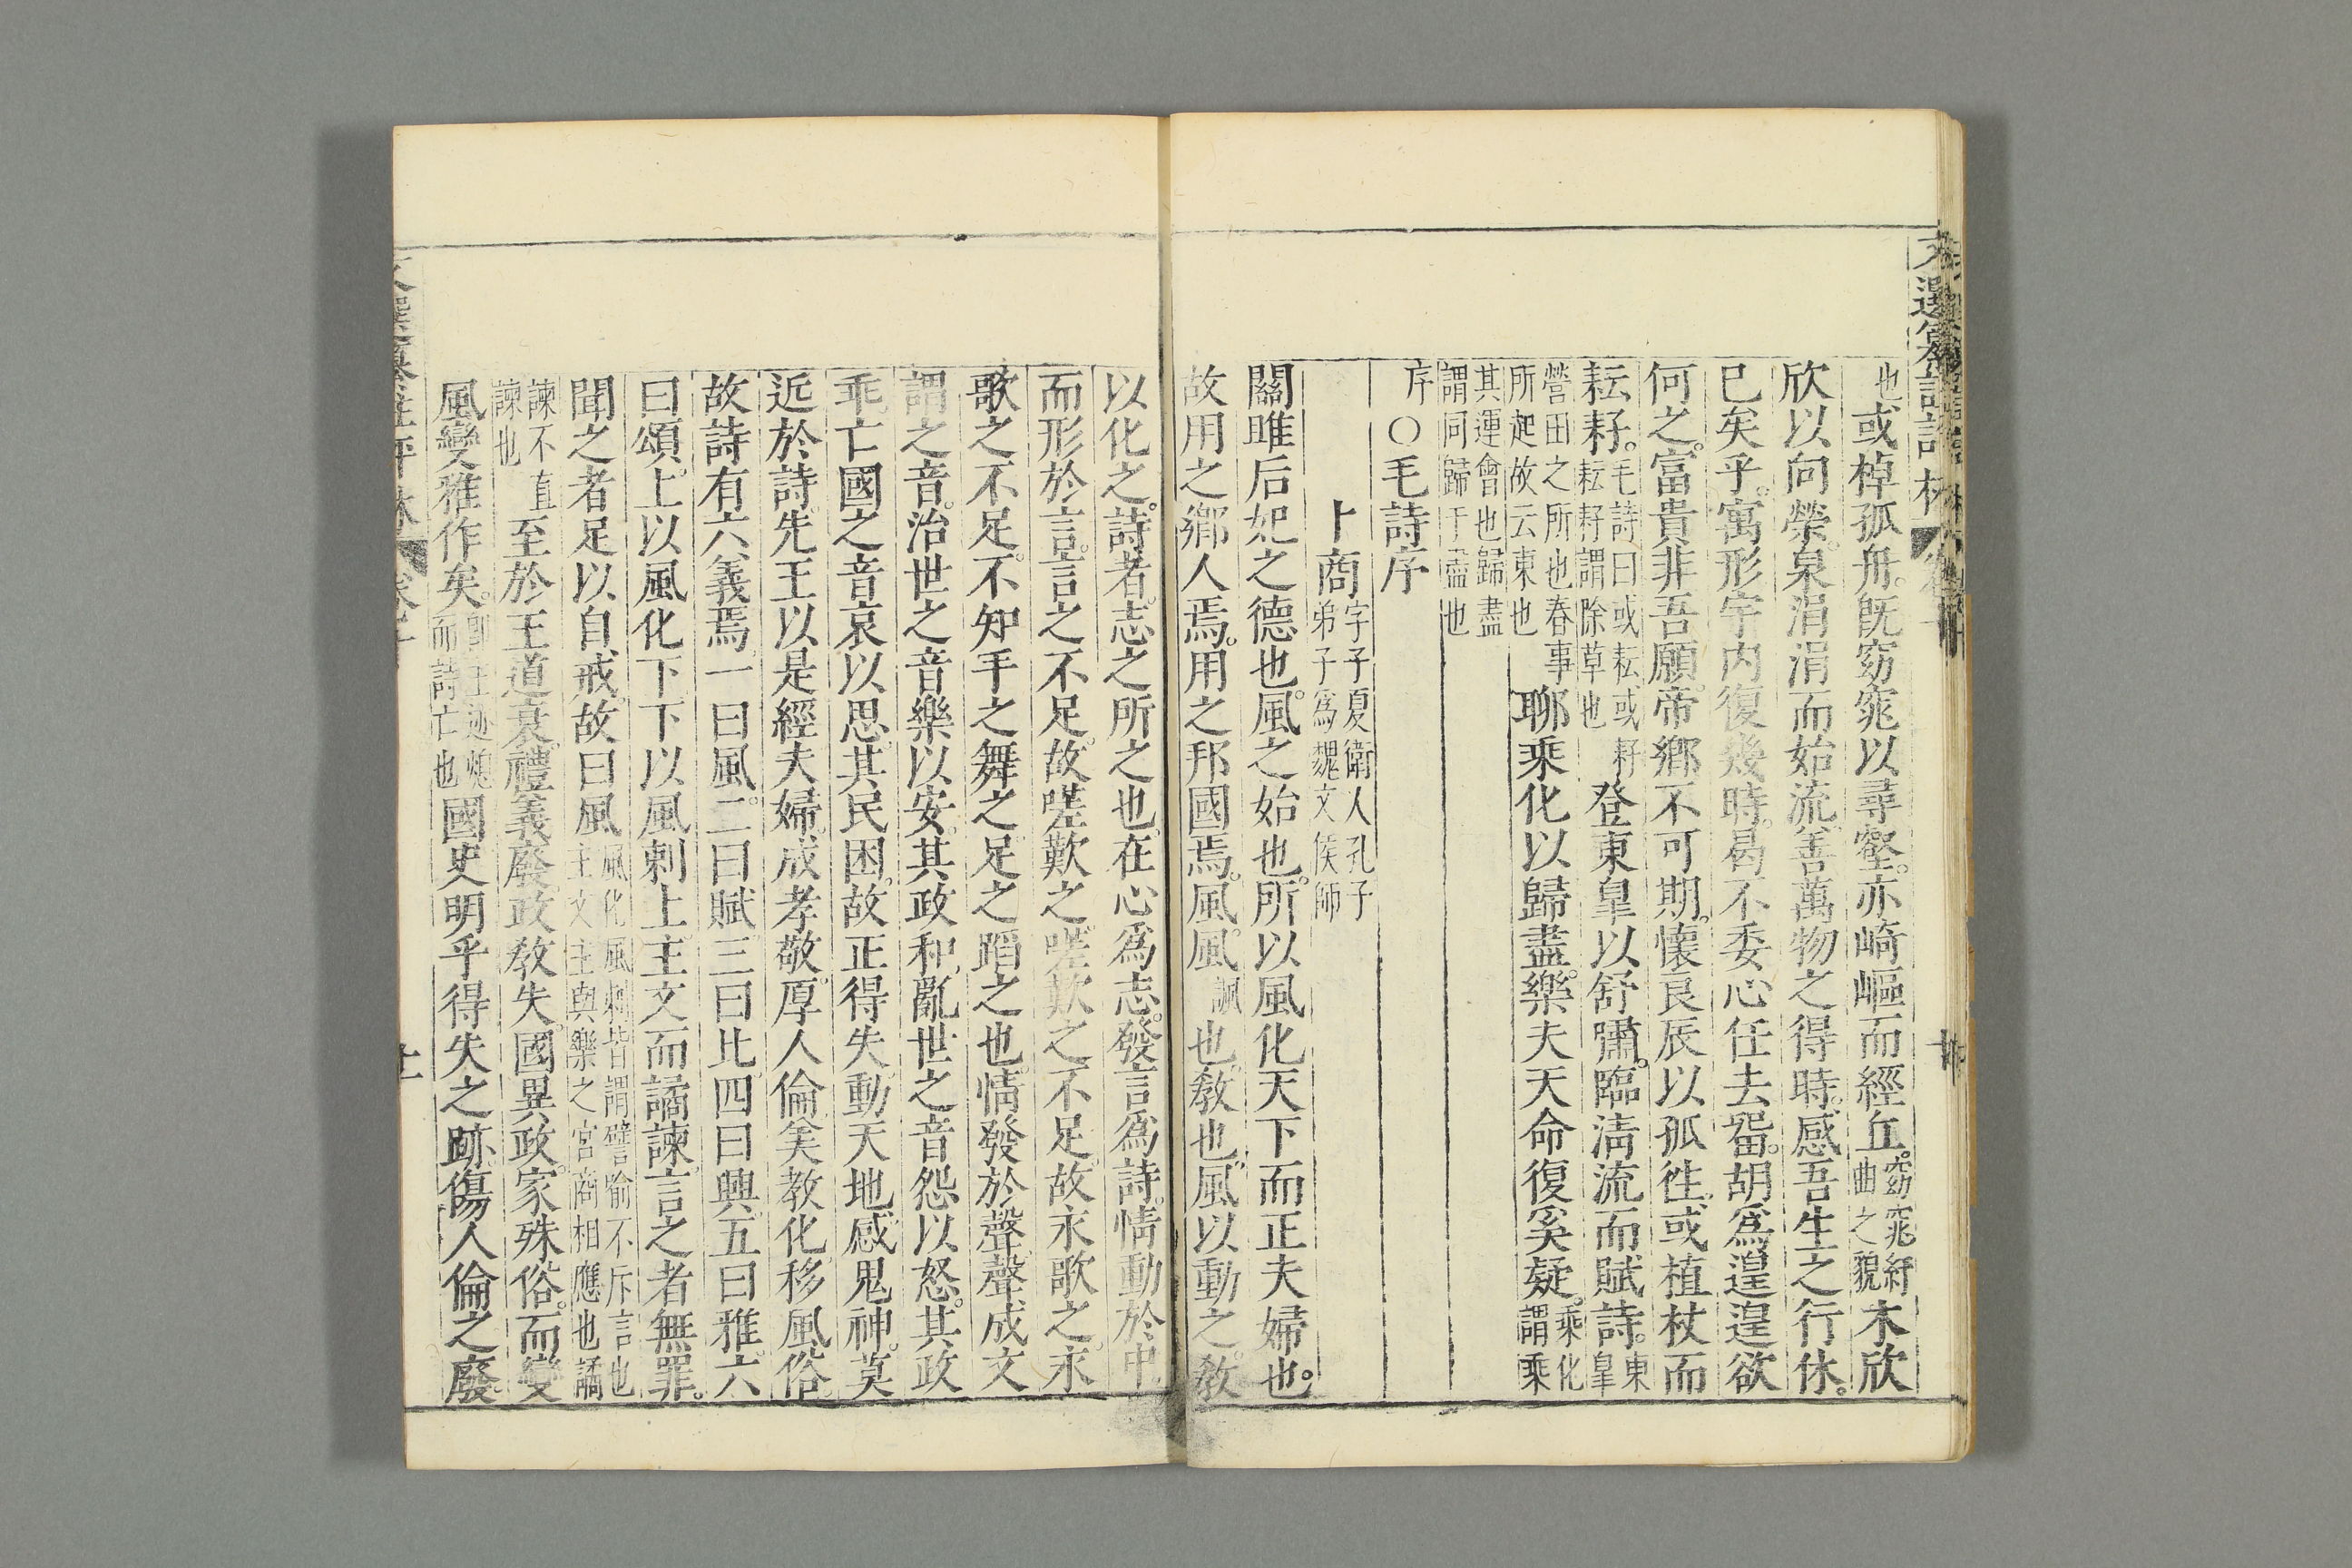 也或棹孤舟。旣窈窕以尋壑。亦崎嶇而經丘。窈窕紆曲之貌木欣
欣以向榮。泉涓涓而始流。善萬物之得時。感吾生之行休。
已矣乎。寓形宇内復幾時。曷不委心任去畱。胡爲遑遑欲
何之。富貴非吾願。帝鄉不可期。懷良辰以孤徃。或植杖而
耘耔。毛詩曰或耘或耔耘耔謂除草也登東皐以舒嘯。臨淸流而賦詩。東皐
營田之所也春事所起故云東也聊乘化以歸盡。樂夫天命復奚疑。乘化謂乘
其運會也歸盡謂同歸于盡也
序〇毛詩序
卜商字子夏衛人孔子弟子爲魏文侯師
關雎后妃之德也。風之始也。所以風化天下而正夫婦也。
故用之鄉人焉。用之邦國焉。風。風諷也。敎也。風以動之。敎
以化之。詩者。志之所之也。在心爲志。發言爲詩。情動於中
而形於言。言之不足。故嗟歎之。嗟歎之不足。故永歌之。永
歌之不足。不知手之舞之。足之蹈之也。情發於聲。聲成文
謂之音。治世之音樂以安。其政和。亂世之音怨以怒。其政
乖。亡國之音哀以思。其民困。故正得失。動天地。感鬼神。莫
近於詩。先王以是經夫婦。成孝敬。厚人倫。美教化。移風俗。
故詩有六義焉。一曰風。二曰賦。三曰比。四曰興。五曰雅。六
曰頌。上以風化下。下以風刺上。主文而譎諫。言之者無罪。
聞之者足以自戒。故曰風。風化風刺皆謂譬喻不斥言也主文主與樂之宮商相應也譎
諫不直諫也至於王道衰。禮義廢。政敎失。國異政。家殊俗。而變
風變雅作矣。卽王迹熄而詩亡也國史明乎得失之跡。傷人倫之廢。